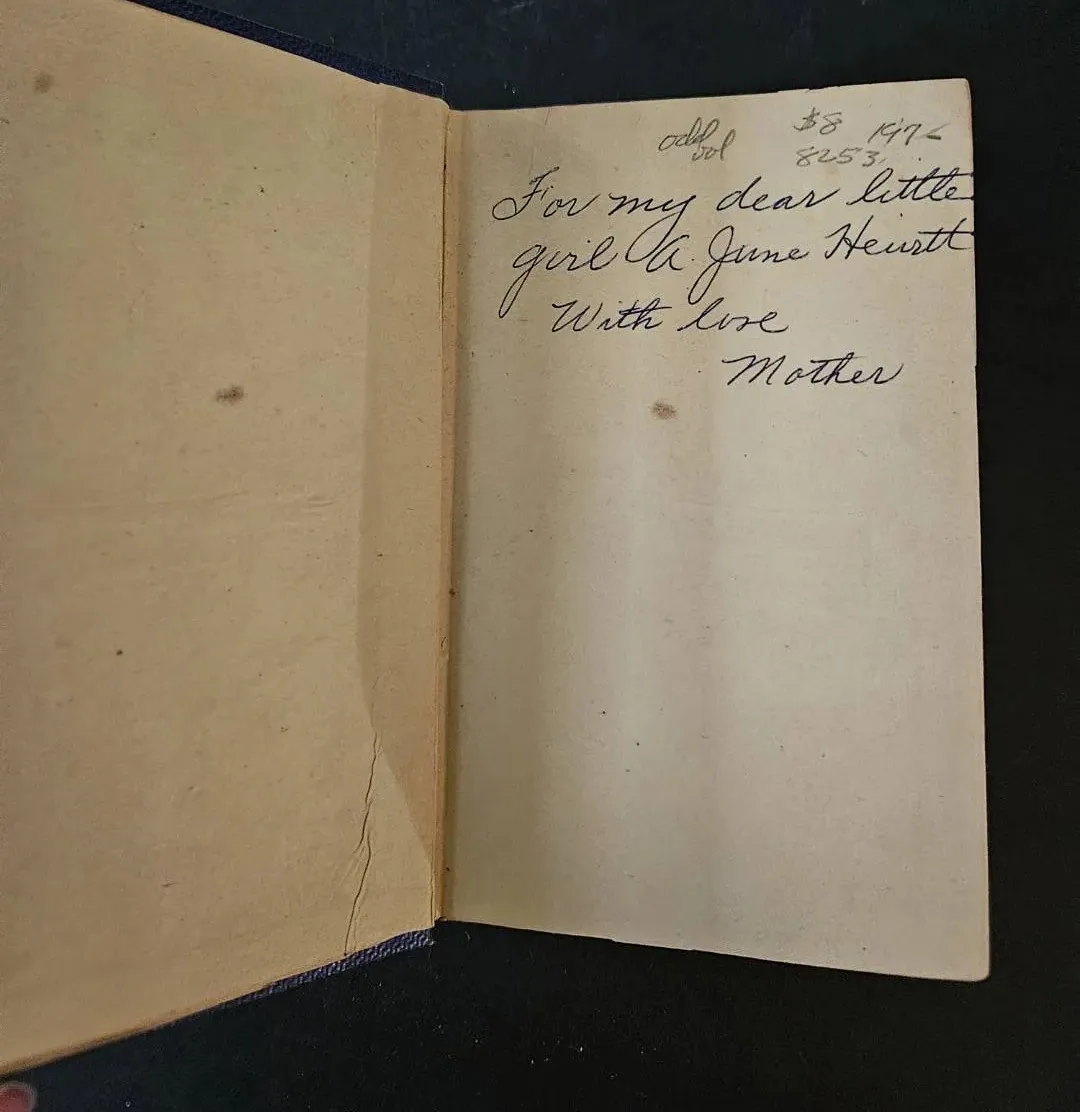 odd $8 197
vol 8253
For my dear little
girl A. June Heustt
With love
Mother